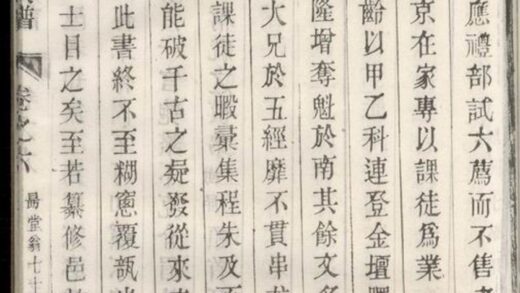 應禮部試六薦而不售
京在家專以課徒爲業
齡以甲乙科連登金壇
隆增奪魁於南其餘文
大兄於五經靡不貫串
課徒之暇彙集程朱及
能破千古之疑發從來
此書終不至糊窻覆瓿
士目之矣至若纂修邑
譜
卷之六
勗堂翁七十